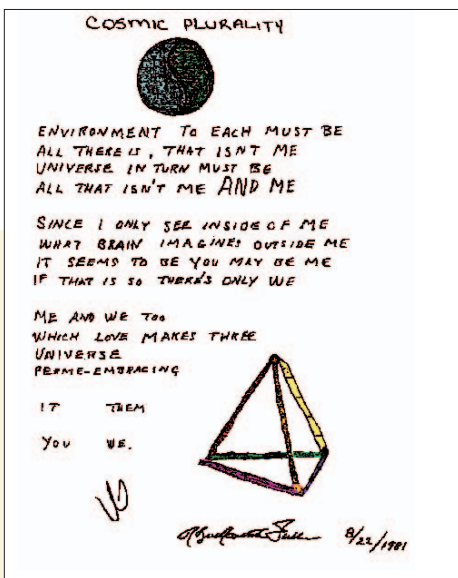 COSMIC PLURALITY
ENVIRONMENT TO EACH MUST BE
ALL THERE IS, THAT ISN'T ME
UNIVERSE IN TURN MUST BE
ALL THAT ISN'T ME AND ME
SINCE I ONLY SEE INSIDE OF ME
WHAT BRAIN IMAGINES OUTSIDE ME
IT SEEMS TO BE YOU MAY BE ME
IF THAT IS SO THERE'S ONLY WE
ME AND WE TOO
WHICH LOVE MAKES THREE
UNIVERSE
PERME-EMBRACING
IT THEM
YOU WE.
8/22/1981